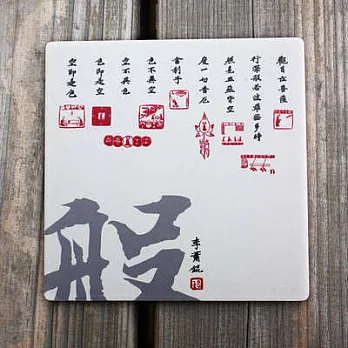 觀自在菩薩
行深般若波羅蜜多時
照見五蘊皆空
度一切苦厄
舍利子
色不異空
空不異色
色即是空
空即是色
般
李蕭錕